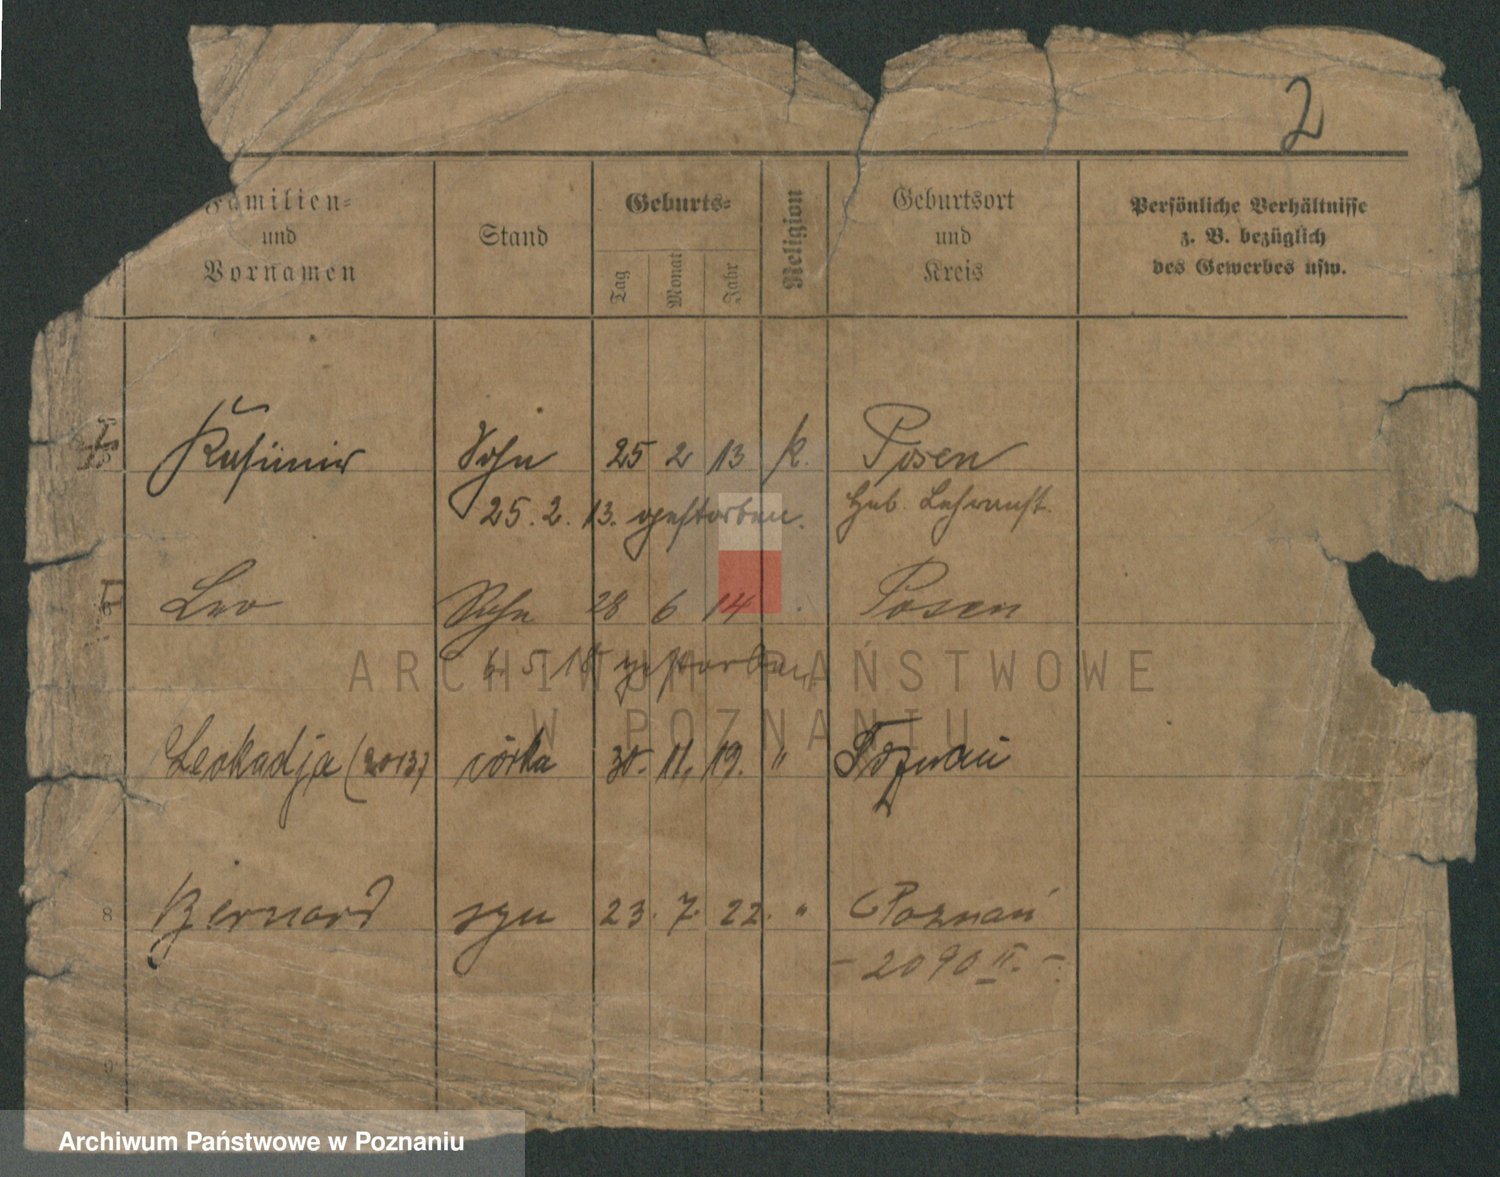 2
Familien=
und
Vornamen
Stand
Geburts=
Tag
Monat
Jahr
Religion
Geburtsort
und
Kreis
Persönliche Verhältnisse
z. B. bezüglich
des Gewerbes usw.
5 Kasimir Sohn 25 2 13 k. Posen
25. 2. 13. gestorben. Heb. Lehranst.
6 Leo Sohn 28 6 14 Posen
6. 5. 15 gestorben
Leokadja (2013) córka 30. 11. 19. " Poznań
8 Bernard syn 23. 7. 22. " Poznań
- 2090 II. -
9
ARCHIWUM PAŃSTWOWE
W POZNANIU
Archiwum Państwowe w Poznaniu